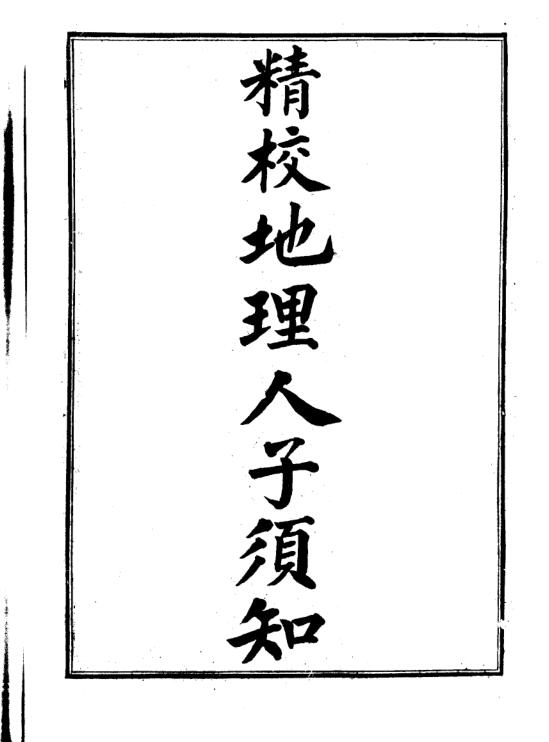 精校地理人子須知